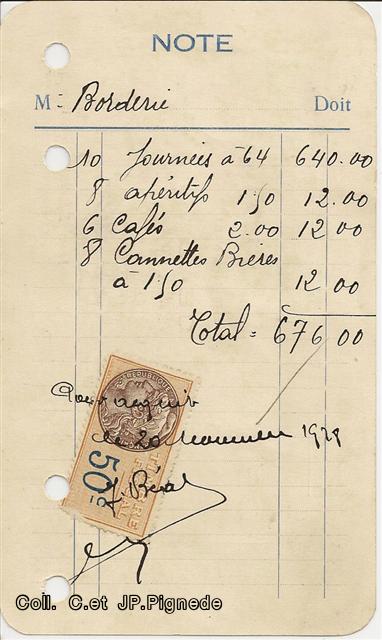 NOTE
M - Borderie Doit
10 Journées à 64 640.00
8 apéritifs 1.50 12.00
6 Cafés 2.00 12 00
8 Cannettes Bières
à 1.50 12 00
Total = 676 00
RÉPUBLIQUE
Pour acquit
le 20 1929
50